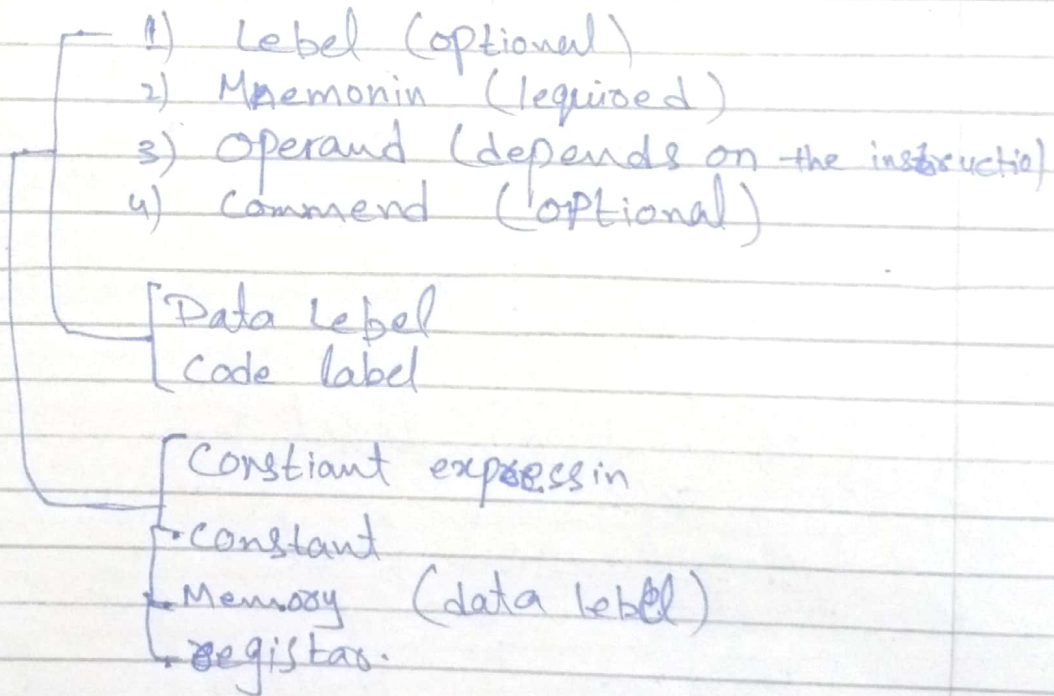 1) Lebel (optional)
2) Mnemonin (lequired)
3) operand (depends on the instructio)
4) Commend (optional)
Data Lebel
Code label
Constiant expressin
constant
Memory (data lebel)
registar.